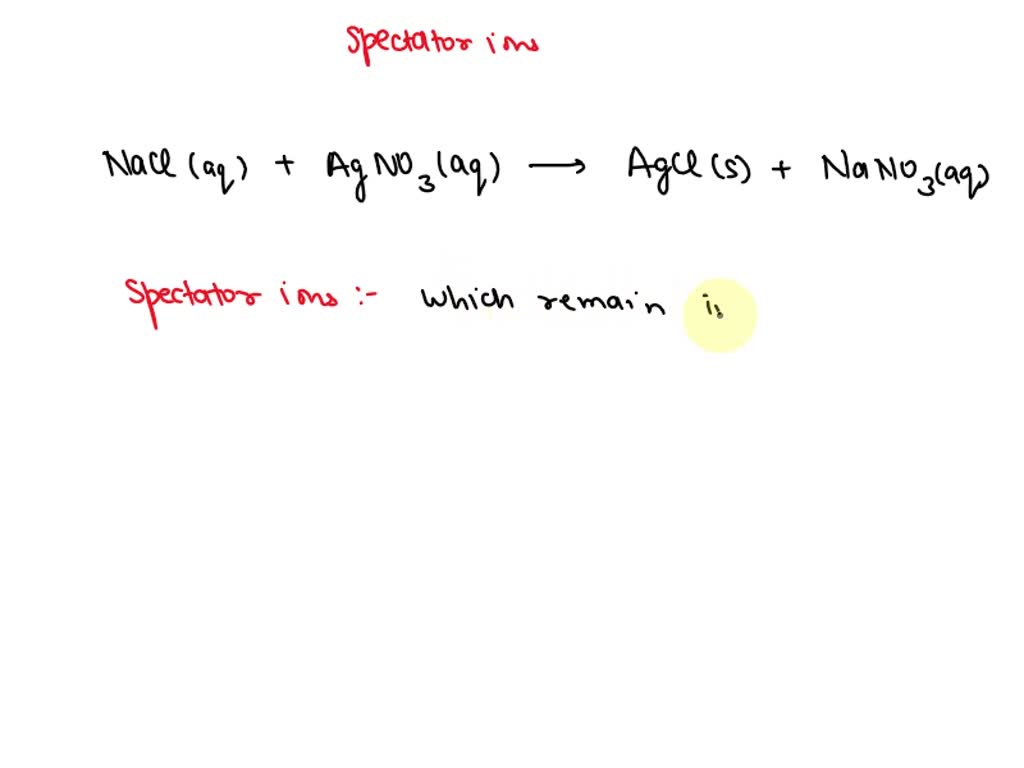 Spectator ions
NaCl (aq) + AgNO₃ (aq) → AgCl (s) + NaNO₃ (aq)
Spectator ions :- which remain